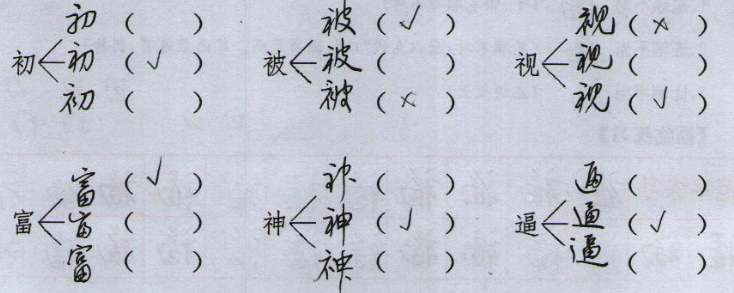 初 初 ( )
初 ( ✓ )
初 ( )
被 被 ( ✓ )
被 ( )
被 ( × )
视 视 ( × )
视 ( )
视 ( ✓ )
富 富 ( ✓ )
富 ( )
富 ( )
神 ( )
神 ( ✓ )
神 ( )
逼 ( )
逼 ( ✓ )
逼 ( )